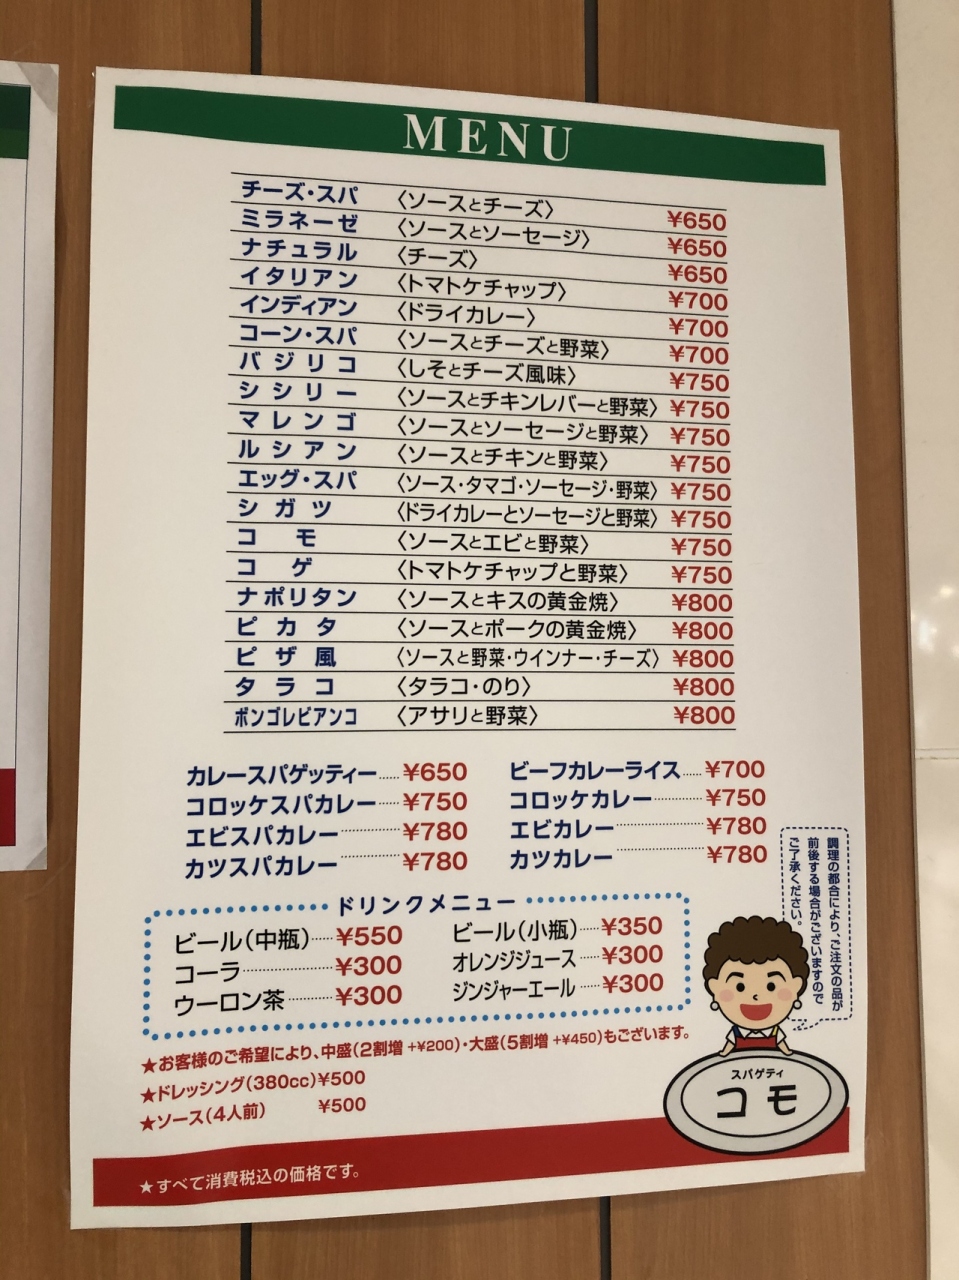 MENU
チーズ・スパ 〈ソースとチーズ〉 ¥650
ミラネーゼ 〈ソースとソーセージ〉 ¥650
ナチュラル 〈チーズ〉 ¥650
イタリアン 〈トマトケチャップ〉 ¥700
インディアン 〈ドライカレー〉 ¥700
コーン・スパ 〈ソースとチーズと野菜〉 ¥700
バジリコ 〈しそとチーズ風味〉 ¥750
シシリー 〈ソースとチキンレバーと野菜〉 ¥750
マレンゴ 〈ソースとソーセージと野菜〉 ¥750
ルシアン 〈ソースとチキンと野菜〉 ¥750
エッグ・スパ 〈ソース・タマゴ・ソーセージ・野菜〉 ¥750
シガツ 〈ドライカレーとソーセージと野菜〉 ¥750
コモ 〈ソースとエビと野菜〉 ¥750
コゲ 〈トマトケチャップと野菜〉 ¥750
ナポリタン 〈ソースとキスの黄金焼〉 ¥800
ピカタ 〈ソースとポークの黄金焼〉 ¥800
ピザ風 〈ソースと野菜・ウインナー・チーズ〉 ¥800
タラコ 〈タラコ・のり〉 ¥800
ボンゴレビアンコ 〈アサリと野菜〉 ¥800
カレースパゲッティー……¥650
コロッケスパカレー……¥750
エビスパカレー……¥780
カツスパカレー……¥780
ビーフカレーライス……¥700
コロッケカレー……¥750
エビカレー……¥780
カツカレー……¥780
ドリンクメニュー
ビール(中瓶)……¥550
コーラ……¥300
ウーロン茶……¥300
ビール(小瓶)……¥350
オレンジジュース……¥300
ジンジャーエール……¥300
調理の都合により、ご注文の品が
前後する場合がございますので
ご了承ください。
★お客様のご希望により、中盛(2割増 +¥200)・大盛(5割増 +¥450)もございます。
★ドレッシング(380cc)¥500
★ソース(4人前) ¥500
スパゲティ
コモ
★すべて消費税込の価格です。